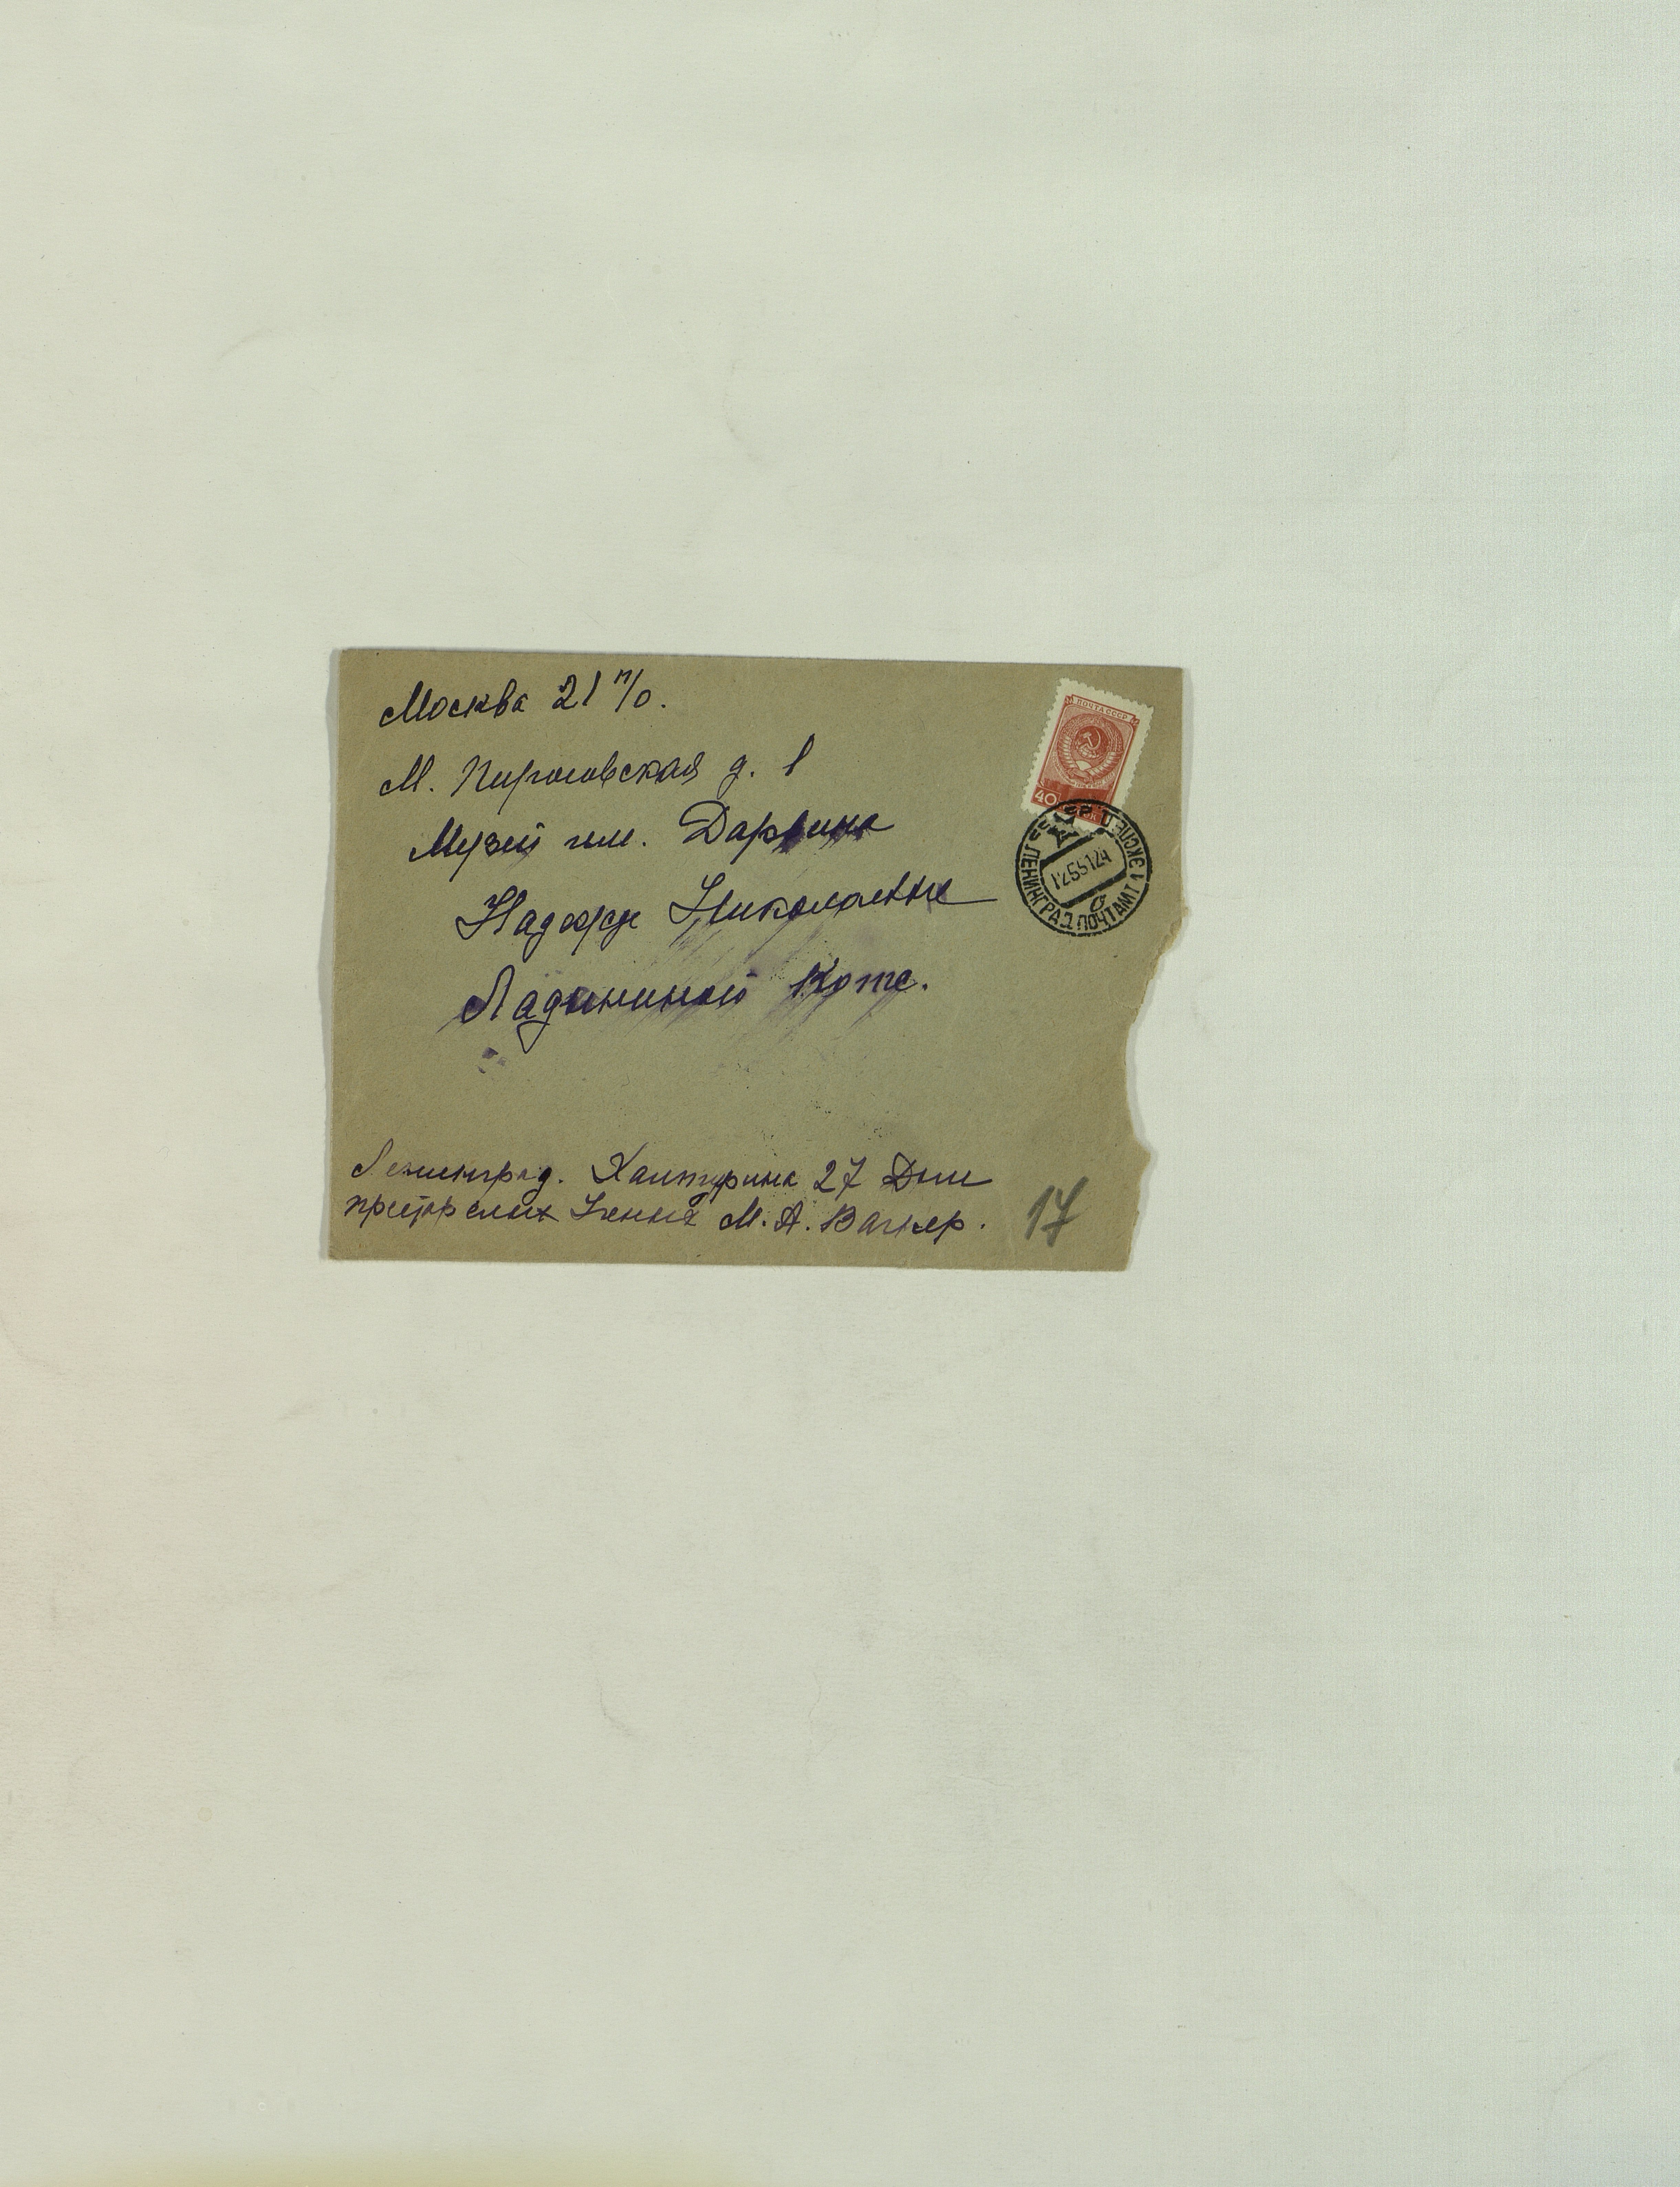 Москва 21 п/о.
М. Пироговская д. 1
Музей им. Дарвина
Надежде Николаевне
Ладыгиной Котс.
ПОЧТА СССР
40
СССР
ЛЕНИНГРАД ПОЧТАМТ 1 ЭКСПЕД
12555124
б
Ленинград. Халтурина 27 Дом
престарелых Ученых М. А. Вагнер.
17